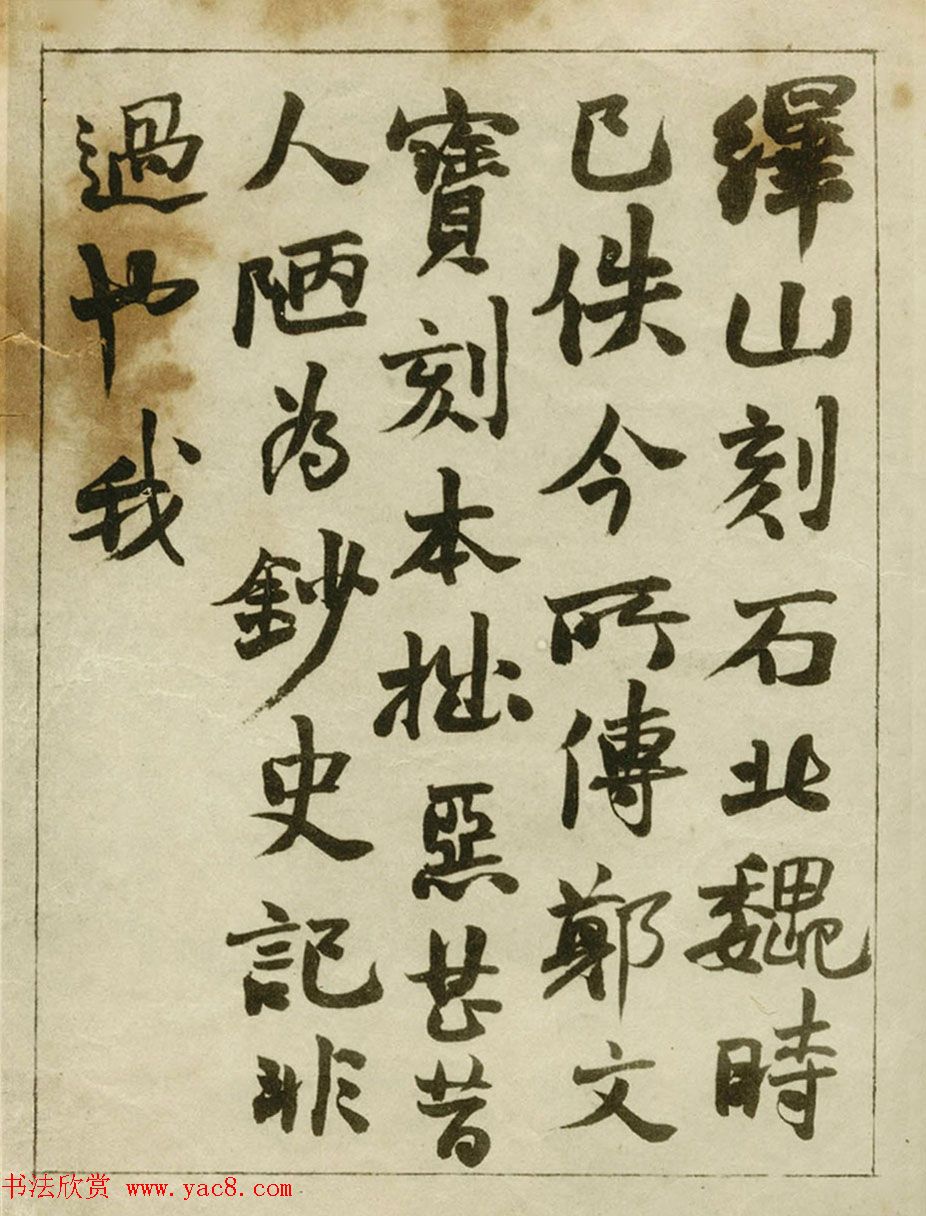 繹山刻石北魏時
已佚今所傳鄭文
寶刻本拙惡甚昔
人陋為鈔史記非
過也我
书法欣赏 www.yac8.com